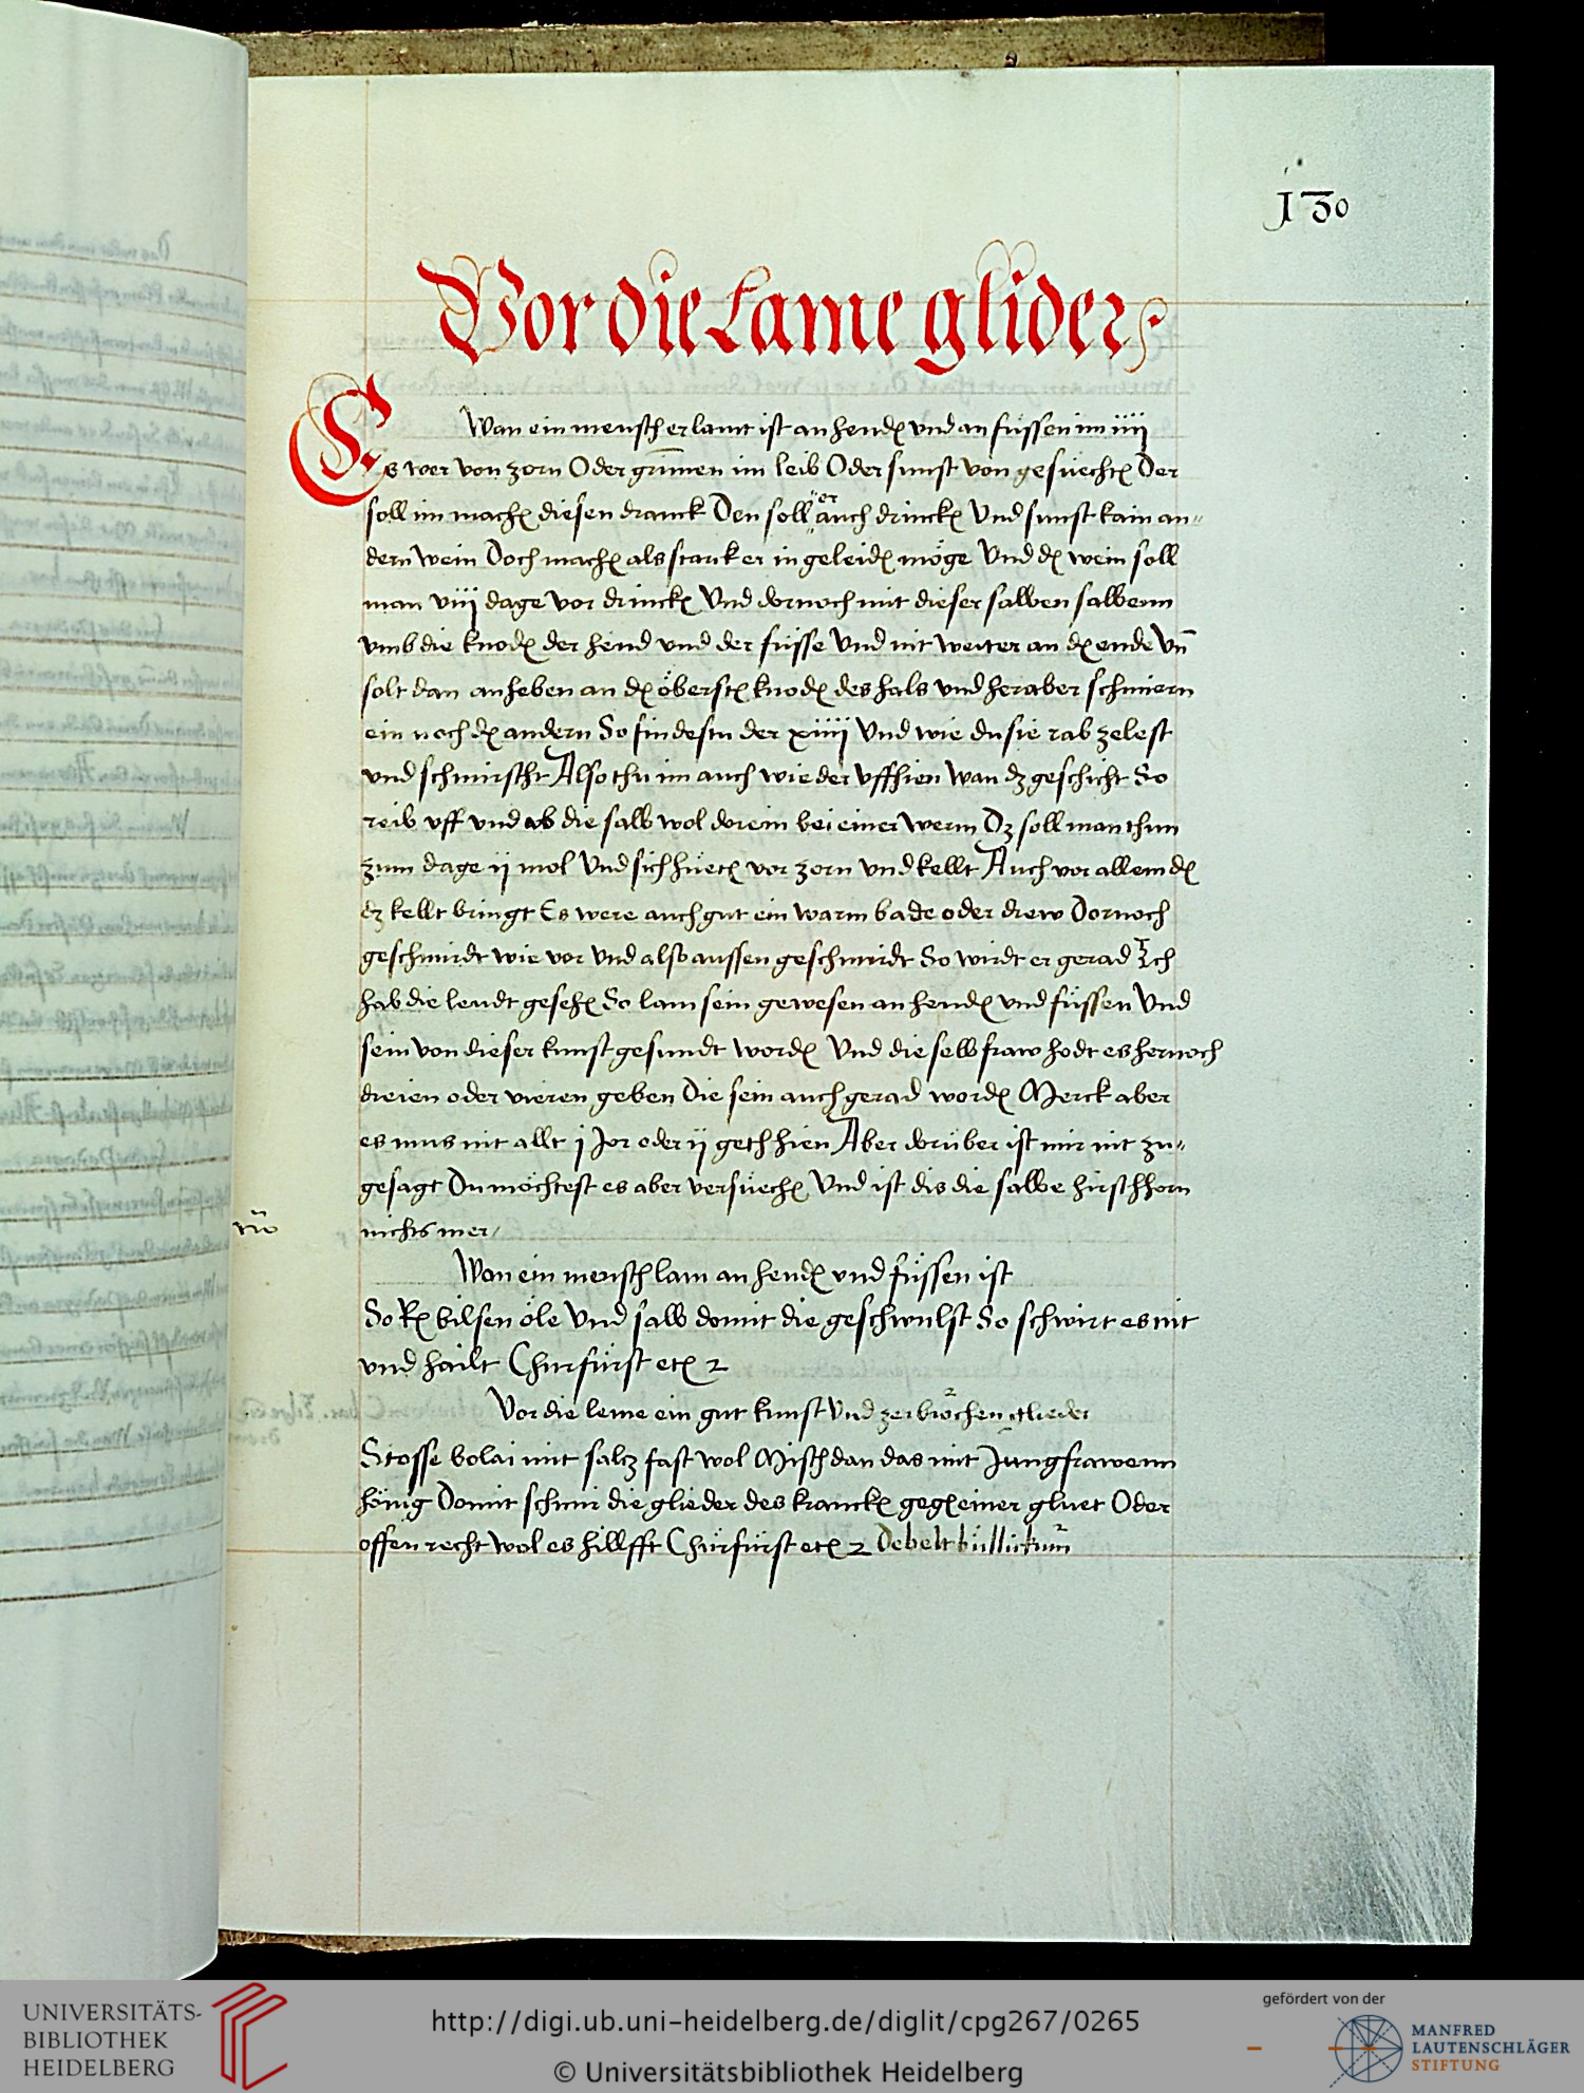 130
Vor die Lame glider
Wan ein mensch erlamt ist an hendē vnd an füssen im iiij
Es wer von zorn Oder grim̄en im leib Oder sunst von gesüechtē Der
soll im machē diesen dranck Den soll er auch drinckē Vnd sunst kain an„
dern wein Doch machē als starck er in geleidē möge Vnd dē wein soll
man viij dage vor drinckē Vnd dornoch mit dieser salben salbenn
vmb die knodē der hend vnd der füsse Vnd nit weiter an dē ende Vn̄
solt dan anheben an dē öberstē knodē des hals vnd heraber schmiern
ein noch dē andern So findestu der xiiij Vnd wie du sie rab zelest
vnd schmirscht Also thu im auch wieder vffhien Wan dz geschicht So
reib vff vnd ab die salb wol dorein bei einer werm Dz soll man thun
zum dage ij mol Vnd sich hüetē vor zorn vnd kellt Auch vor allem dē
dz kellt bringt Es were auch gut ein warm bade oder drew Dornoch
geschmirdt wie vor Vnd also aussen geschmirdt So wirdt er gerad Ich
hab die leudt gesehē So lam sein gewesen an hendē vnd füssen Vnd
sein von dieser kunst gesundt wordē Vnd die selb fraw hodt es hernoch
dreien oder vieren geben Die sein auch gerad wordē Merck aber
es mus nit allt j Jor oder ij geth hien Aber dorüber ist mir nit zu„
gesagt Du möchtest es aber versüechē Vnd ist dis die salbe hirschhorn
nichts mer
Wan ein mensch lam an hendē vnd füssen ist
So Rē bilsen öle Vnd salb domit die geschwulst So schwirt es nit
vnd hailt Churfürst etē 2
Vor die leme ein gut kunst Vnd zerbrochen glieder
Stosse bolai mit salcz fast wol Misch dan das mit Jungfrawenn
hönig Domit schmir die glieder des kranckē gegē einer gluet Oder
offen recht wol es hillfft Churfürst etē 2
UNIVERSITÄTS-
BIBLIOTHEK
HEIDELBERG
http://digi.ub.uni-heidelberg.de/diglit/cpg267/0265
© Universitätsbibliothek Heidelberg
gefördert von der
MANFRED
LAUTENSCHLÄGER
STIFTUNG